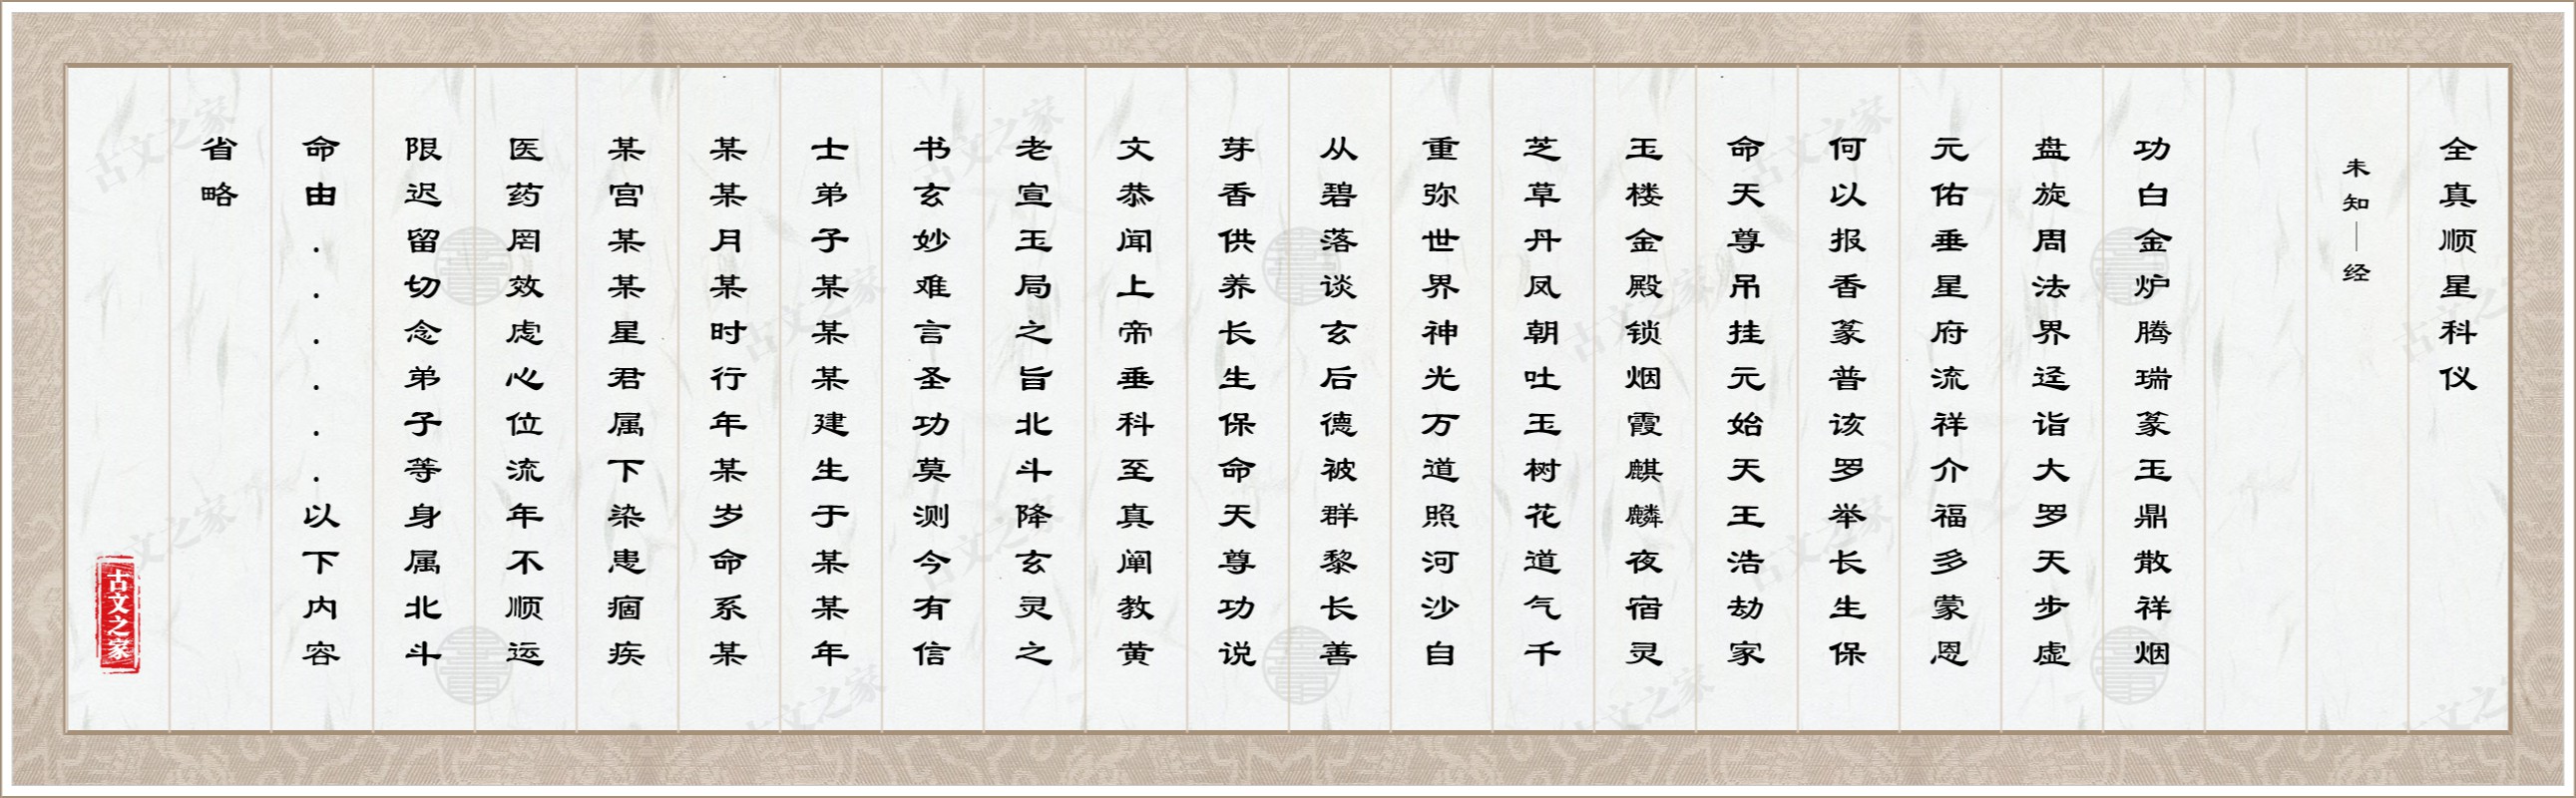 全真顺星科仪
未知｜经
功白金炉腾瑞篆玉鼎散祥烟
盘旋周法界迳诣大罗天步虚
元佑垂星府流祥介福多蒙恩
何以报香篆普该罗举长生保
命天尊吊挂元始天王浩劫家
玉楼金殿锁烟霞麒麟夜宿灵
芝草丹凤朝吐玉树花道气千
重弥世界神光万道照河沙自
从碧落谈玄后德被群黎长善
芽香供养长生保命天尊功说
文恭闻上帝垂科至真阐教黄
老宣玉局之旨北斗降玄灵之
书玄妙难言圣功莫测今有信
士弟子某某某建生于某某年
某某月某时行年某岁命系某
某宫某某星君属下染患痼疾
医药罔效虑心位流年不顺运
限迟留切念弟子等身属北斗
命由......以下内容
省略
古文之家